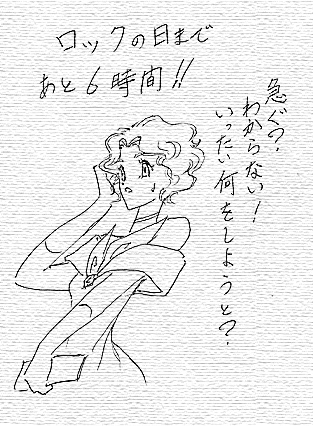 ロックの日まで
あと6時間!!
急ぐ?
わからない!
いったい何をしようと?